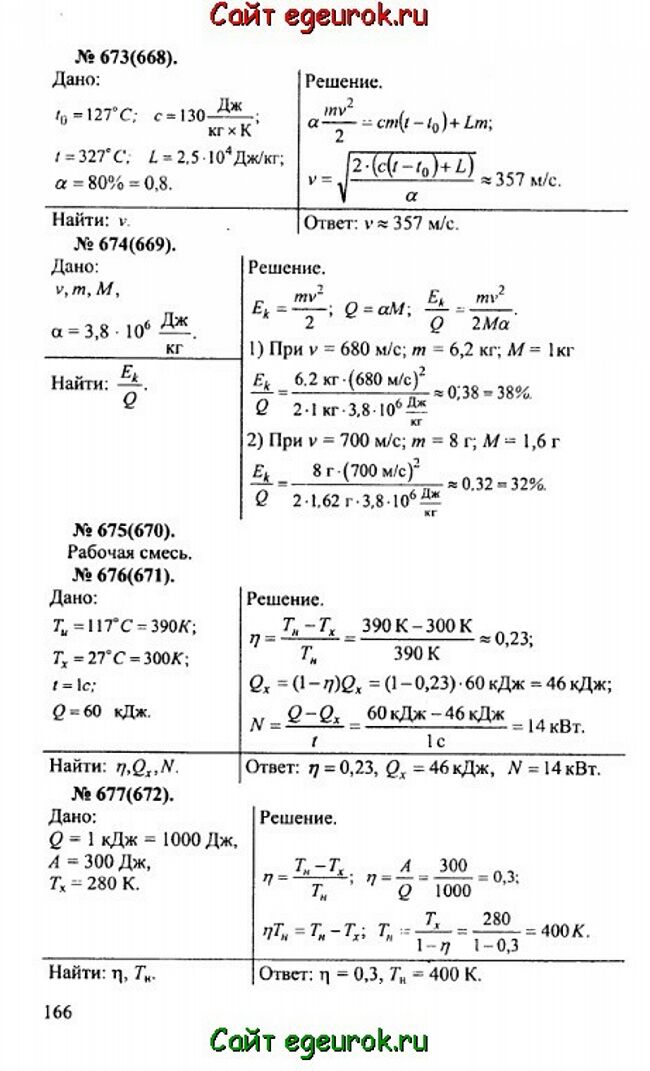 Сайт egeurok.ru
№ 673(668).
Дано:
t₀ = 127°C; c = 130 Дж/(кг x K);
t = 327°C; L = 2,5·10⁴ Дж/кг;
α = 80% = 0,8.
Найти: v.
Решение.
α mv²/2 = cm(t − t₀) + Lm;
v = √(2·(c(t − t₀) + L)/α) ≈ 357 м/с.
Ответ: v ≈ 357 м/с.
№ 674(669).
Дано:
v, m, M,
α = 3,8 · 10⁶ Дж/кг.
Найти: Eₖ/Q.
Решение.
Eₖ = mv²/2; Q = αM; Eₖ/Q = mv²/2Mα.
1) При v = 680 м/с; m = 6,2 кг; M = 1кг
Eₖ/Q = 6.2 кг·(680 м/с)²/(2·1 кг·3,8·10⁶ Дж/кг) ≈ 0,38 = 38%.
2) При v = 700 м/с; m = 8 г; M = 1,6 г
Eₖ/Q = 8 г·(700 м/с)²/(2·1,62 г·3,8·10⁶ Дж/кг) ≈ 0.32 = 32%.
№ 675(670).
Рабочая смесь.
№ 676(671).
Дано:
Tн = 117°C = 390K;
Tх = 27°C = 300K;
t = 1с;
Q = 60 кДж.
Найти: η, Qх, N.
Решение.
η = (Tн − Tх)/Tн = (390 K − 300 K)/390 K ≈ 0,23;
Qх = (1 − η)Qх = (1 − 0,23)·60 кДж = 46 кДж;
N = (Q − Qх)/t = (60 кДж − 46 кДж)/1с = 14 кВт.
Ответ: η = 0,23, Qх = 46 кДж, N = 14 кВт.
№ 677(672).
Дано:
Q = 1 кДж = 1000 Дж,
A = 300 Дж,
Tх = 280 К.
Найти: η, Tн.
Решение.
η = (Tн − Tх)/Tн; η = A/Q = 300/1000 = 0,3;
ηTн = Tн − Tх; Tн = Tх/(1 − η) = 280/(1 − 0,3) = 400K.
Ответ: η = 0,3, Tн = 400 К.
166
Сайт egeurok.ru